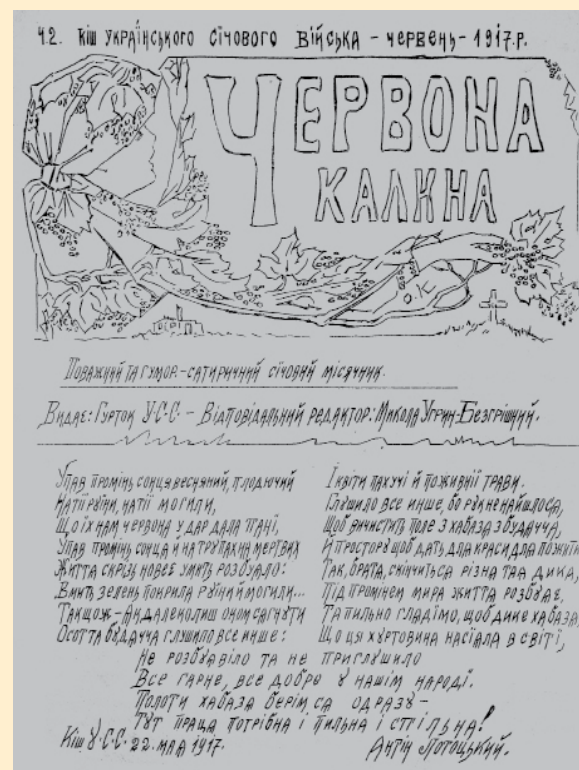 Ч.2. Кіш Українського Січового Війська – червень – 1917.р.
ЧЕРВОНА
КАЛИНА
Поважний та гумор.-сатиричний січовий місячник.
Видає: Гурток У.С.С. – Відповідальний редактор: Микола Угрин-Безгрішний.
Упав промінь сонця весняний, плодючий
На тії руїни, на тії могили,
Що їх нам червона у дар дала пані,
Упав промінь сонця й на трупах мертвих
Життя скрізь новеє умить розбуяло:
Вмить зелень покрила руїни й могили...
Та що ж – Ай далеко лиш оком сягнути
Осот та будачча глушило все инше:
І квіти пахучі й поживнії трави.
Глушило все инше, бо рук не найшлося,
Щоб вичистить поле з хабаза з будачча,
Й простору щоб дать для краси для пожитку
Так, брата, скінчиться різна тая дика,
Під променем мира життя розбуяє,
Та пильно глядімо, щоб дике хабаза,
Що ця хуртовина насіяла в світі,
Не розбуяло та не приглушило
Все гарне, все добре у нашім народі.
Полоти хабаза берім ся одразу –
Тут праця потрібна і пильна і спільна!
Кіш У.С.С. 22. мая 1917.
Антін Лотоцький.